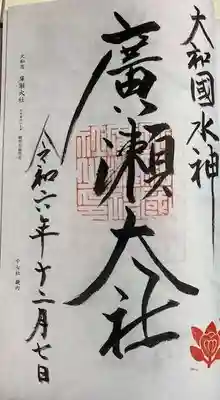 大和國水神
廣瀬大社
令和六年十二月七日
廣瀬大社